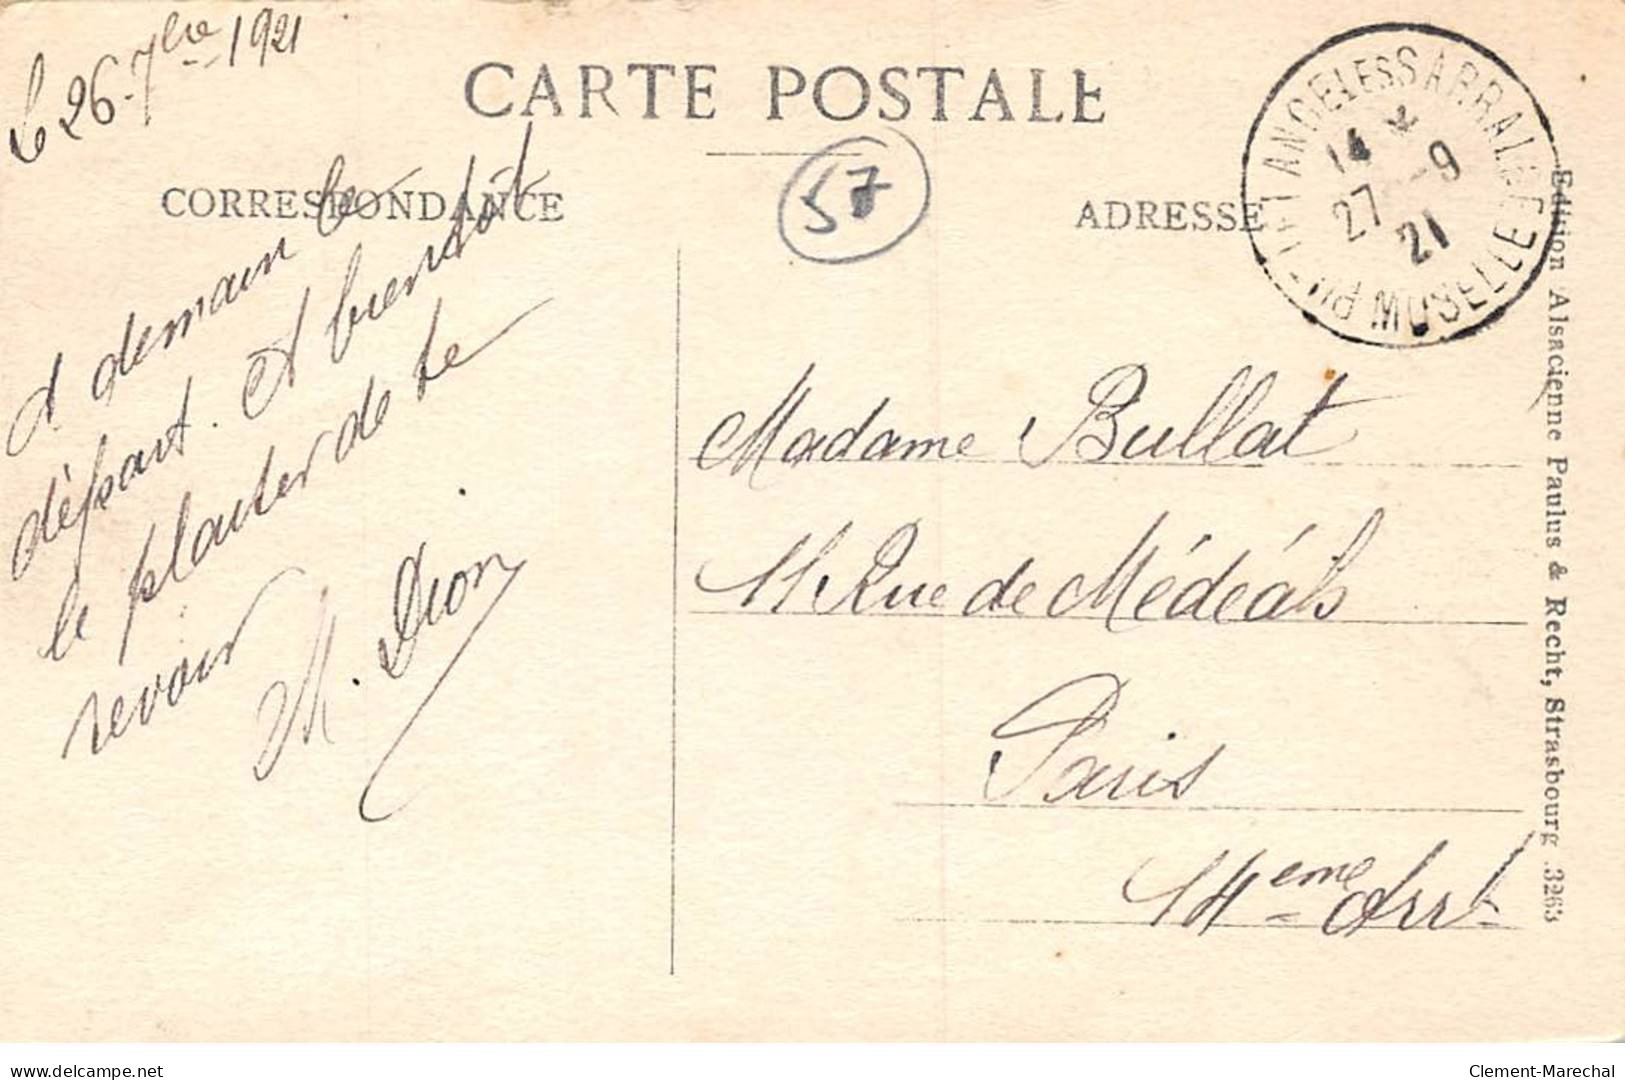 le 26-7bre 1921
CARTE POSTALE
57
CORRESPONDANCE
ADRESSE
à demain le
départ. et bientôt
le plauter de te
revoir
M. Dion
Madame Bullat
11 Rue de
Paris
14eme Arrt
PUTTELANGE LES SARRALBE
MOSELLE
14 *
27 -9
21
Edition Alsacienne Paulus & Recht, Strasbourg .3263
delcampe.net
Clement-Marechal